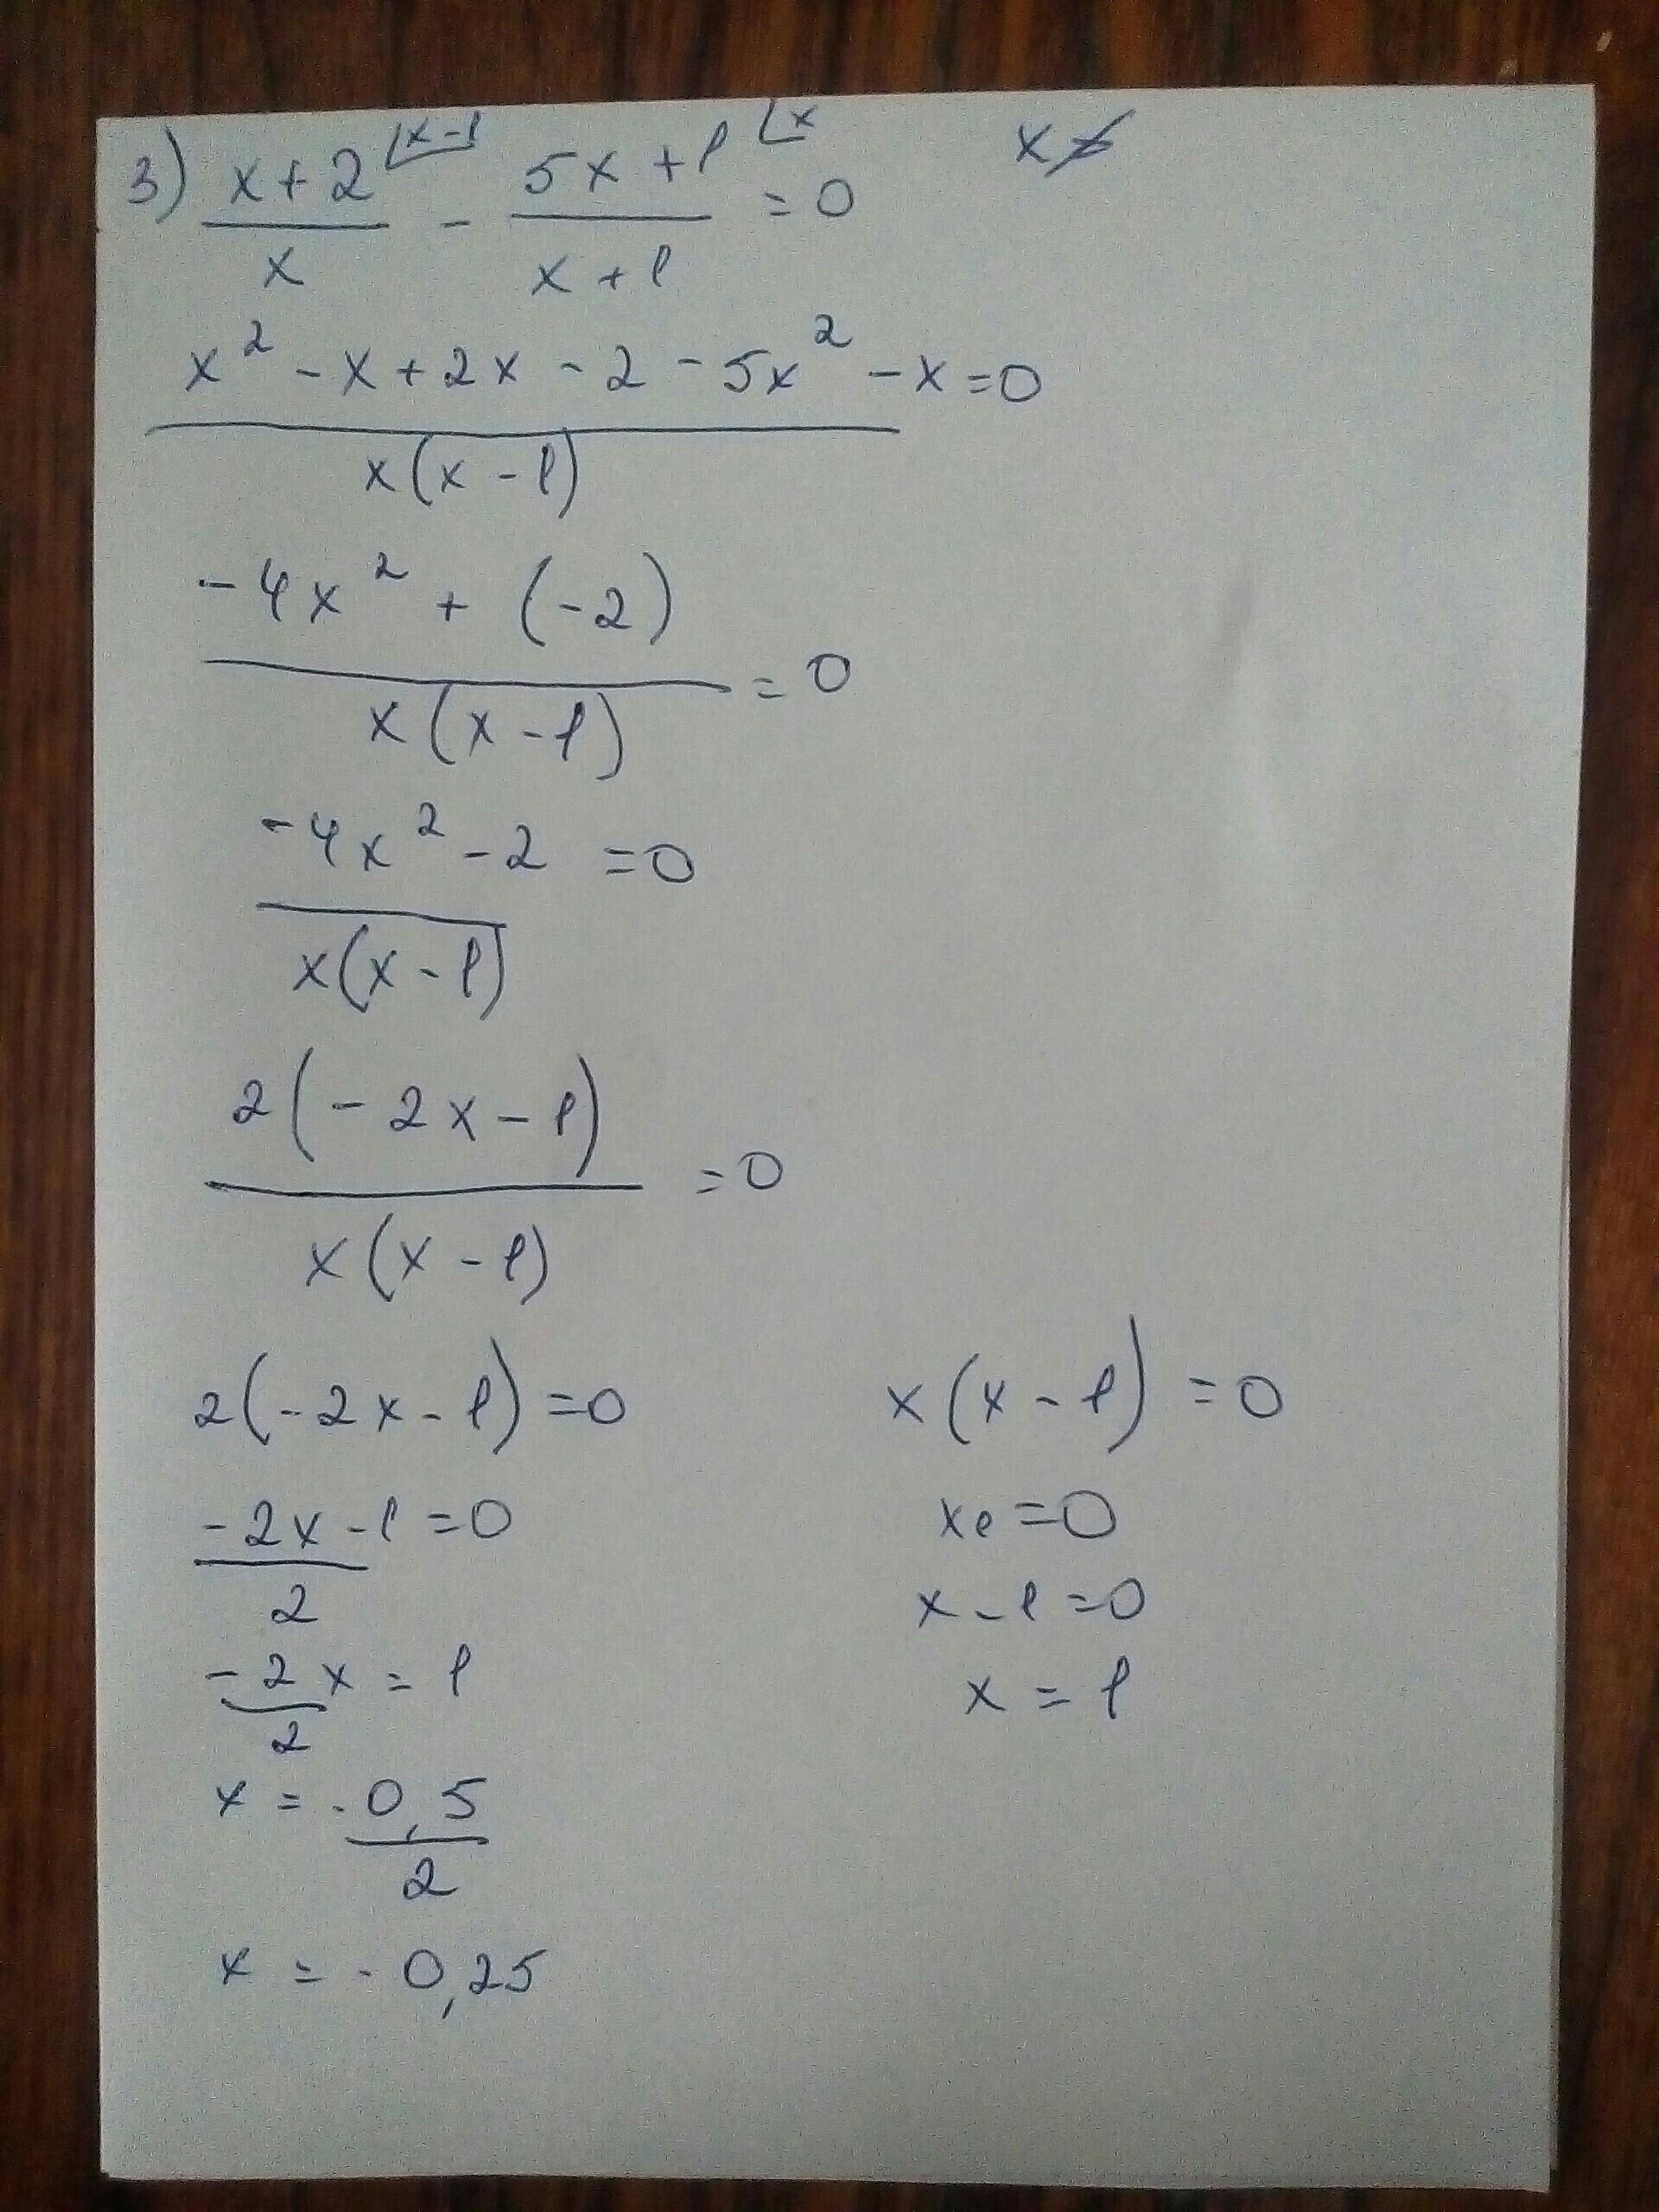 3) (x+2)/x ⌊x-1 - (5x+1)/(x+1) ⌊x = 0    x ≠
(x² - x + 2x - 2 - 5x² - x)/(x(x-1)) = 0
(-4x² + (-2))/(x(x-1)) = 0
(-4x² - 2)/(x(x-1)) = 0
2(-2x-1)/(x(x-1)) = 0
2(-2x-1)=0    x(x-1)=0
(-2x-1)/2 = 0    x₁=0
x-1=0
(-2)/2 x = 1    x = 1
x = -0,5/2
x = -0,25